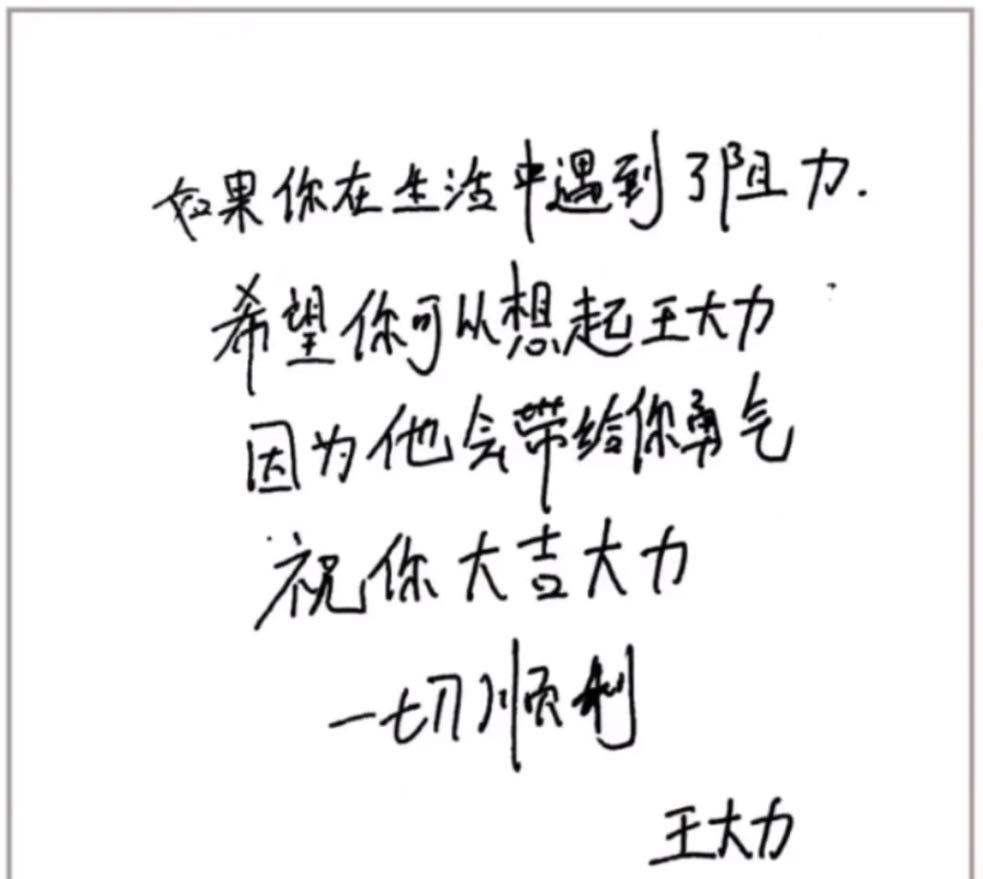 如果你在生活中遇到了阻力.
希望你可以想起王大力
因为他会带给你勇气
祝你大吉大力
一切顺利
王大力